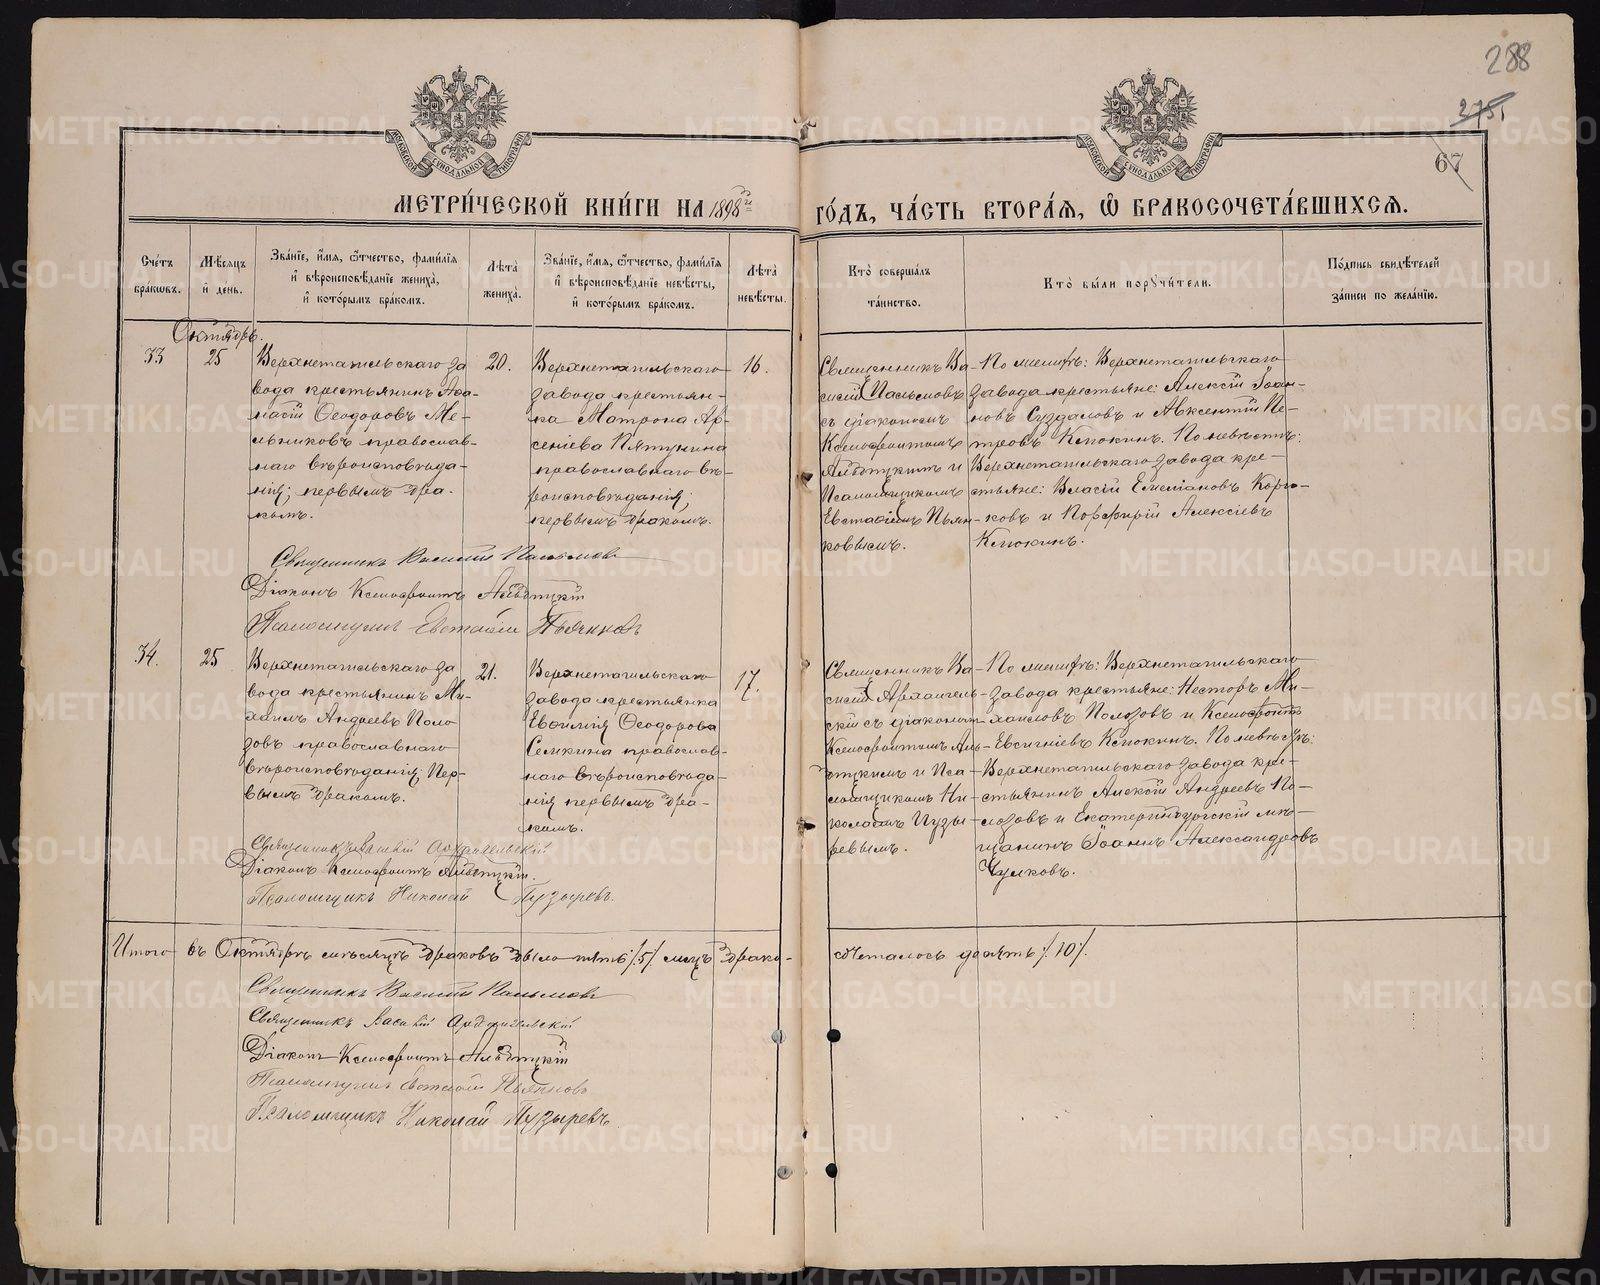 288
275
67
МОСКОВСКОЙ СѴНОДАЛЬНОЙ ТИПОГРАФІИ
МОСКОВСКОЙ СѴНОДАЛЬНОЙ ТИПОГРАФІИ
МЕТРИ́ЧЕСКОЙ КНИ́ГИ НА 1898й ГО́ДЪ, ЧА́СТЬ ВТОРА́Я, Ѡ БРАКОСОЧЕТА́ВШИХСЯ.
Сче́тъ бра́кѡвъ.
Мѣ́сяцъ и҆ де́нь.
Зва́нїе, и҆́мя, ѻ҆́тчество, фами́лїя и҆ вѣроисповѣ́данїе жениха̀, и҆ кото́рымъ бра́комъ.
Лѣ́та жениха̀.
Зва́нїе, и҆́мя, ѻ҆́тчество, фами́лїя и҆ вѣроисповѣ́данїе невѣ́сты, и҆ кото́рымъ бра́комъ.
Лѣ́та невѣ́сты.
Кто̀ соверша́лъ та́инство.
Кто̀ бы́ли порꙋчи́тели.
По́дпись свидѣ́телей за́писи по жела́нїю.
Октябрь.
33
25
Верхнетагильскаго за
вода крестьянинъ Аѳа-
насій Ѳеодоровъ Ме-
льниковъ православ-
наго вѣроисповѣда-
нія; первымъ бра-
комъ.
20.
Верхнетагильскаго
завода крестьян-
ка Матрона Ар-
сеніева Пятунина
православнаго вѣ-
роисповѣданія;
первымъ бракомъ.
16.
Священникъ Ва-
силій Пальмовъ
съ діакономъ
Ксенофонтомъ
Албицкимъ и
Псаломщикомъ
Евстафіемъ Пьян-
ковымъ.
По женихѣ: Верхнетагильскаго
завода крестьяне: Алексій Іоан-
новъ Суздаловъ и Авксентій Пе-
тровъ Клюкинъ. По невѣстѣ:
Верхнетагильскаго завода кре-
стьяне: Власій Емеліановъ Корю-
ковъ и Порфирій Алексіевъ
Клюкинъ.
Священникъ Василій Пальмовъ
Діаконъ Ксенофонтъ Албицкій
Псаломщикъ Евстафій Пьянковъ
34.
25
Верхнетагильскаго за
вода крестьянинъ Ми-
хаилъ Андреевъ Поло
зовъ православнаго
вѣроисповѣданія; пер-
вымъ бракомъ.
21.
Верхнетагильскаго
завода крестьянка
Евѳимія Ѳеодорова
Селкина православ-
наго вѣроисповѣда-
нія первымъ бра-
комъ.
17.
Священникъ Ва-
силій Архангель-
скій съ діакономъ
Ксенофонтомъ Ал-
бицкимъ и Пса-
ломщикомъ Ни-
колаемъ Пузы-
ревымъ.
По женихѣ: Верхнетагильскаго
завода крестьяне: Несторъ Ми-
хаиловъ Полозовъ и Ксенофонтъ
Евсигніевъ Клюкинъ. По невѣстѣ:
Верхнетагильскаго завода кре-
стьянинъ Алексій Андреевъ По-
лозовъ и Екатеринбургскій мѣ-
щанинъ Іоаннъ Александровъ
Чулковъ.
Священникъ Василій Архангельскій
Діаконъ Ксенофонтъ Албицкій.
Псаломщикъ Николай Пузыревъ.
Итого въ Октябрѣ мѣсяцѣ браковъ было пять /5/ лицъ брако-
сѣталось десять /10/.
Священникъ Василій Пальмовъ
Священникъ Василій Архангельскій
Діаконъ Ксенофонтъ Албицкій
Псаломщикъ Евстафій Пьянковъ
Псаломщикъ Николай Пузыревъ.
METRIKI.GASO-URAL.RU